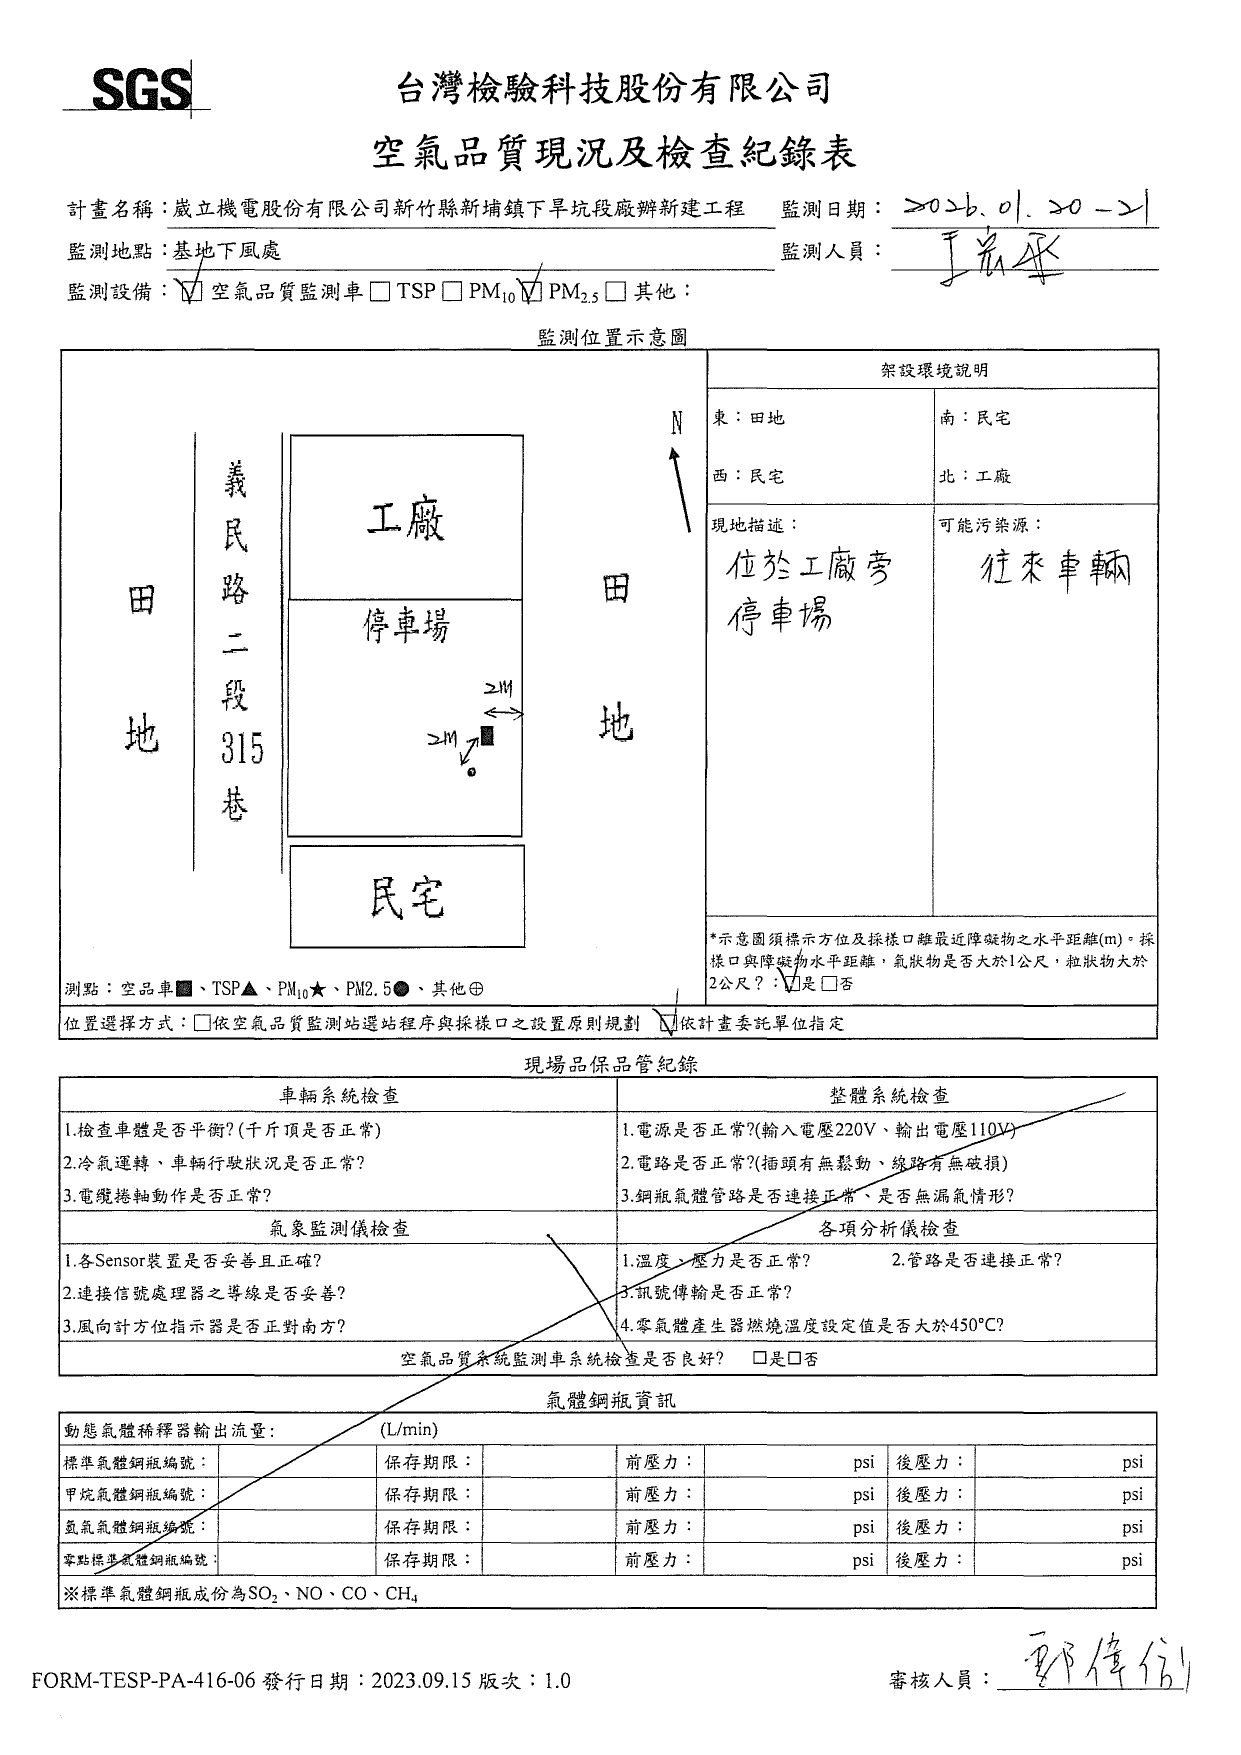 SGS
台灣檢驗科技股份有限公司
空氣品質現況及檢查紀錄表
計畫名稱：崴立機電股份有限公司新竹縣新埔鎮下旱坑段廠辦新建工程 監測日期： 2026.01.20-21
監測地點：基地下風處 監測人員：王宏丞
監測設備：☑空氣品質監測車□TSP□PM10☑PM2.5□其他：
監測位置示意圖
架設環境說明
東：田地 南：民宅
西：民宅 北：工廠
現地描述： 可能污染源：
位於工廠旁 往來車輛
停車場
N
義民路二段315巷
工廠
停車場
田地
田地
2M
2M
民宅
*示意圖須標示方位及採樣口離最近障礙物之水平距離(m)。採
樣口與障礙物水平距離，氣狀物是否大於1公尺，粒狀物大於
2公尺？：☑是□否
測點：空品車■、TSP▲、PM10★、PM2.5●、其他⊕
位置選擇方式：□依空氣品質監測站選站程序與採樣口之設置原則規劃 ☑依計畫委託單位指定
現場品保品管紀錄
車輛系統檢查 整體系統檢查
1.檢查車體是否平衡?(千斤頂是否正常) 1.電源是否正常?(輸入電壓220V、輸出電壓110V)
2.冷氣運轉、車輛行駛狀況是否正常? 2.電路是否正常?(插頭有無鬆動、線路有無破損)
3.電纜捲軸動作是否正常? 3.鋼瓶氣體管路是否連接正常、是否無漏氣情形?
氣象監測儀檢查 各項分析儀檢查
1.各Sensor裝置是否妥善且正確? 1.溫度、壓力是否正常? 2.管路是否連接正常?
2.連接信號處理器之導線是否妥善? 3.訊號傳輸是否正常?
3.風向計方位指示器是否正對南方? 4.零氣體產生器燃燒溫度設定值是否大於450°C?
空氣品質系統監測車系統檢查是否良好? □是□否
氣體鋼瓶資訊
動態氣體稀釋器輸出流量: (L/min)
標準氣體鋼瓶編號： 保存期限： 前壓力： psi 後壓力： psi
甲烷氣體鋼瓶編號： 保存期限： 前壓力： psi 後壓力： psi
氫氣氣體鋼瓶編號： 保存期限： 前壓力： psi 後壓力： psi
零點標準氣體鋼瓶編號： 保存期限： 前壓力： psi 後壓力： psi
※標準氣體鋼瓶成份為SO2、NO、CO、CH4
FORM-TESP-PA-416-06 發行日期：2023.09.15 版次：1.0 審核人員：鄭偉信